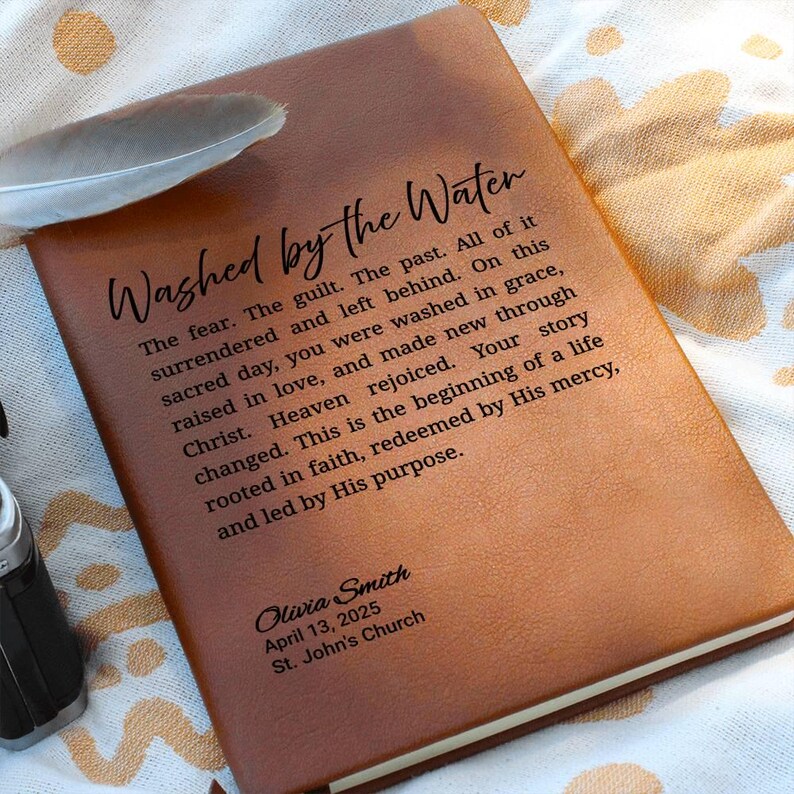 Washed by the Water
The fear. The guilt. The past. All of it
surrendered and left behind. On this
sacred day, you were washed in grace,
raised in love, and made new through
Christ. Heaven rejoiced. Your story
changed. This is the beginning of a life
rooted in faith, redeemed by His mercy,
and led by His purpose.
Olivia Smith
April 13, 2025
St. John's Church